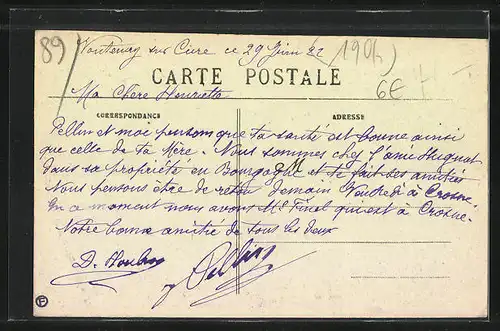 89)
Voutenay sur Cure ce 29 Juin 22
1906)
CARTE POSTALE
6€
Ma Chere Henrietta
CORRESPONDANCE
ADRESSE
Pellin et moi pensons que ta santé est bonne ainsi
que celle de ta Mère. Nous sommes chez l'amie
dans sa propriété en Bourgogne et te fait ses amitiés
Nous pensons être de retour demain Vendredi à Crosne
En ce moment nous avons Me Finel qui est à Crosne
Notre bonne amitié de tous les deux
D.
Pellin
F